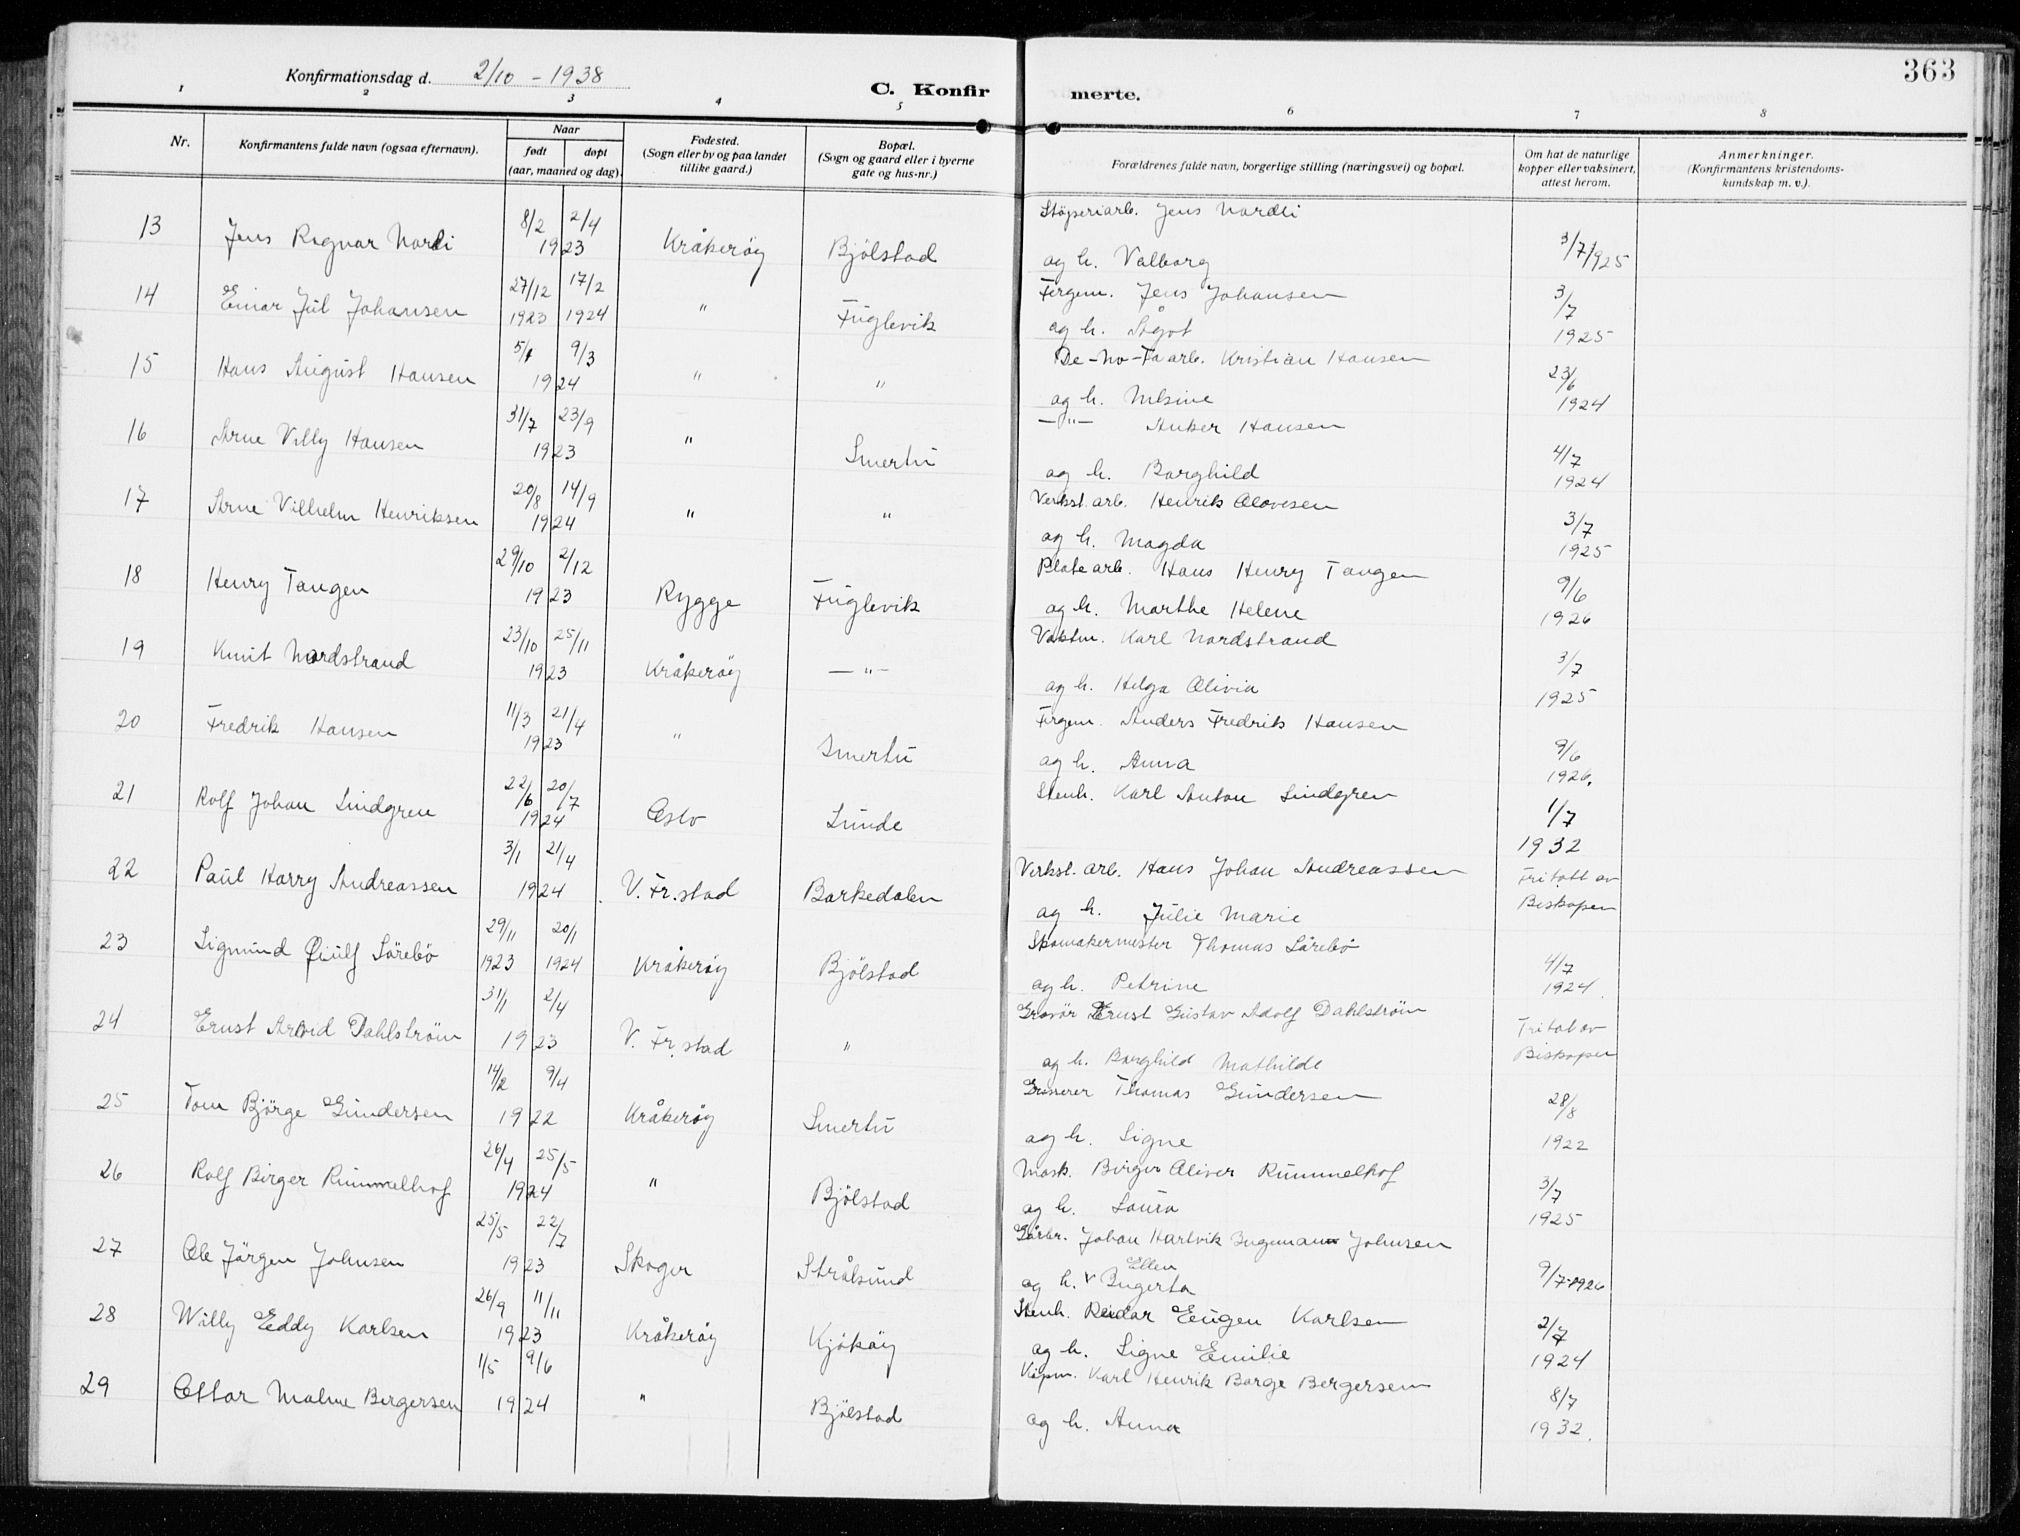 363
Konfirmationsdag d. 2/10 - 1938
C. Konfir merte.
1 2 3 4 5 6 7 8
Nr. Konfirmantens fulde navn (ogsaa efternavn). Naar født døpt (aar, maaned og dag). Fødested. (Sogn eller by og paa landet tillike gaard.) Bopæl. (Sogn og gaard eller i byerne gate og hus-nr.) Forældrenes fulde navn, borgerlige stilling (næringsvei) og bopæl. Om hat de naturlige kopper eller vaksinert, attest herom. Anmerkninger. (Konfirmantens kristendoms-kundskap m. v.).
13 Jens Ragnar Nordli 8/2 2/4 1923 Kråkerøy Bjölstad Stöperiarb. Jens Nordli
og h. Valborg 3/7 1925
14 Einar Jul Johansen 27/12 1923 17/2 1924 " Fuglevik Fergem. Jens Johansen
og h. Ågot 3/7 1925
15 Hans August Hansen 5/1 9/3 1924 " " De-No-Fa arb. Kristian Hansen
og h. Nilsine 23/6 1924
16 Arne Villy Hansen 31/7 23/9 1923 " Smertu —"— Anker Hansen
og h. Borghild 4/7 1924
17 Arne Vilhelm Henriksen 20/8 14/9 1924 " " Verkst. arb. Henrik Olavesen
og h. Magda 3/7 1925
18 Henry Tangen 29/10 2/12 1923 Rygge Fuglevik Platearb. Hans Henry Tangen
og h. Marthe Helene 9/6 1926
19 Knut Nordstrand 23/10 25/11 1923 Kråkerøy —"— Vaktm. Karl Nordstrand
og h. Helga Olivia 3/7 1925
20 Fredrik Hansen 11/3 21/4 1923 " Smertu Fergem. Anders Fredrik Hansen
og h. Anna 9/6 1926.
21 Rolf Johan Lindgren 22/6 20/7 1924 Oslo Lunde Stenh. Karl Anton Lindgren
1/7 1932
22 Paul Harry Andreassen 3/1 21/4 1924 V. Fr.stad Barkedalen Verkst. arb. Hans Johan Andreassen
og h. Julie Marie Fritatt av Biskopen
23 Sigmund Öiulf Sörebö 29/11 1923 20/1 1924 Kråkerøy Bjölstad Skomakermester Thomas Sörebö
og h. Petrine 4/7 1924
24 Ernst Arvid Dahlström 31/1 2/4 1923 V. Fr.stad " Gravör Ernst Gustav Adolf Dahlström
og h. Borghild Mathilde Fritat av Biskopen
25 Tom Björge Gundersen 14/2 9/4 1922 Kråkerøy Smertu Grosserer Thomas Gundersen
og h. Signe 28/8 1922
26 Rolf Birger Rummelhof 26/4 25/5 1924 " Bjölstad Mask. Birger Oliver Rummelhof
og h. Laura 3/7 1925
27 Ole Jörgen Johnsen 25/5 22/7 1923 Skoger Strålsund Gårbr. Johan Hartvik Ingemann Johnsen
og h. Ellen Ingerta 9/7-1926
28 Willy Eddy Karlsen 26/9 11/11 1923 Kråkerøy Kjøkøy Stenh. Reidar Eugen Karlsen
og h. Signe Emilie 2/7 1924
29 Ottar Malme Bergersen 1/5 9/6 1924 " Bjölstad Kjøpm. Karl Henrik Borge Bergersen
og h. Anna 8/7 1932.